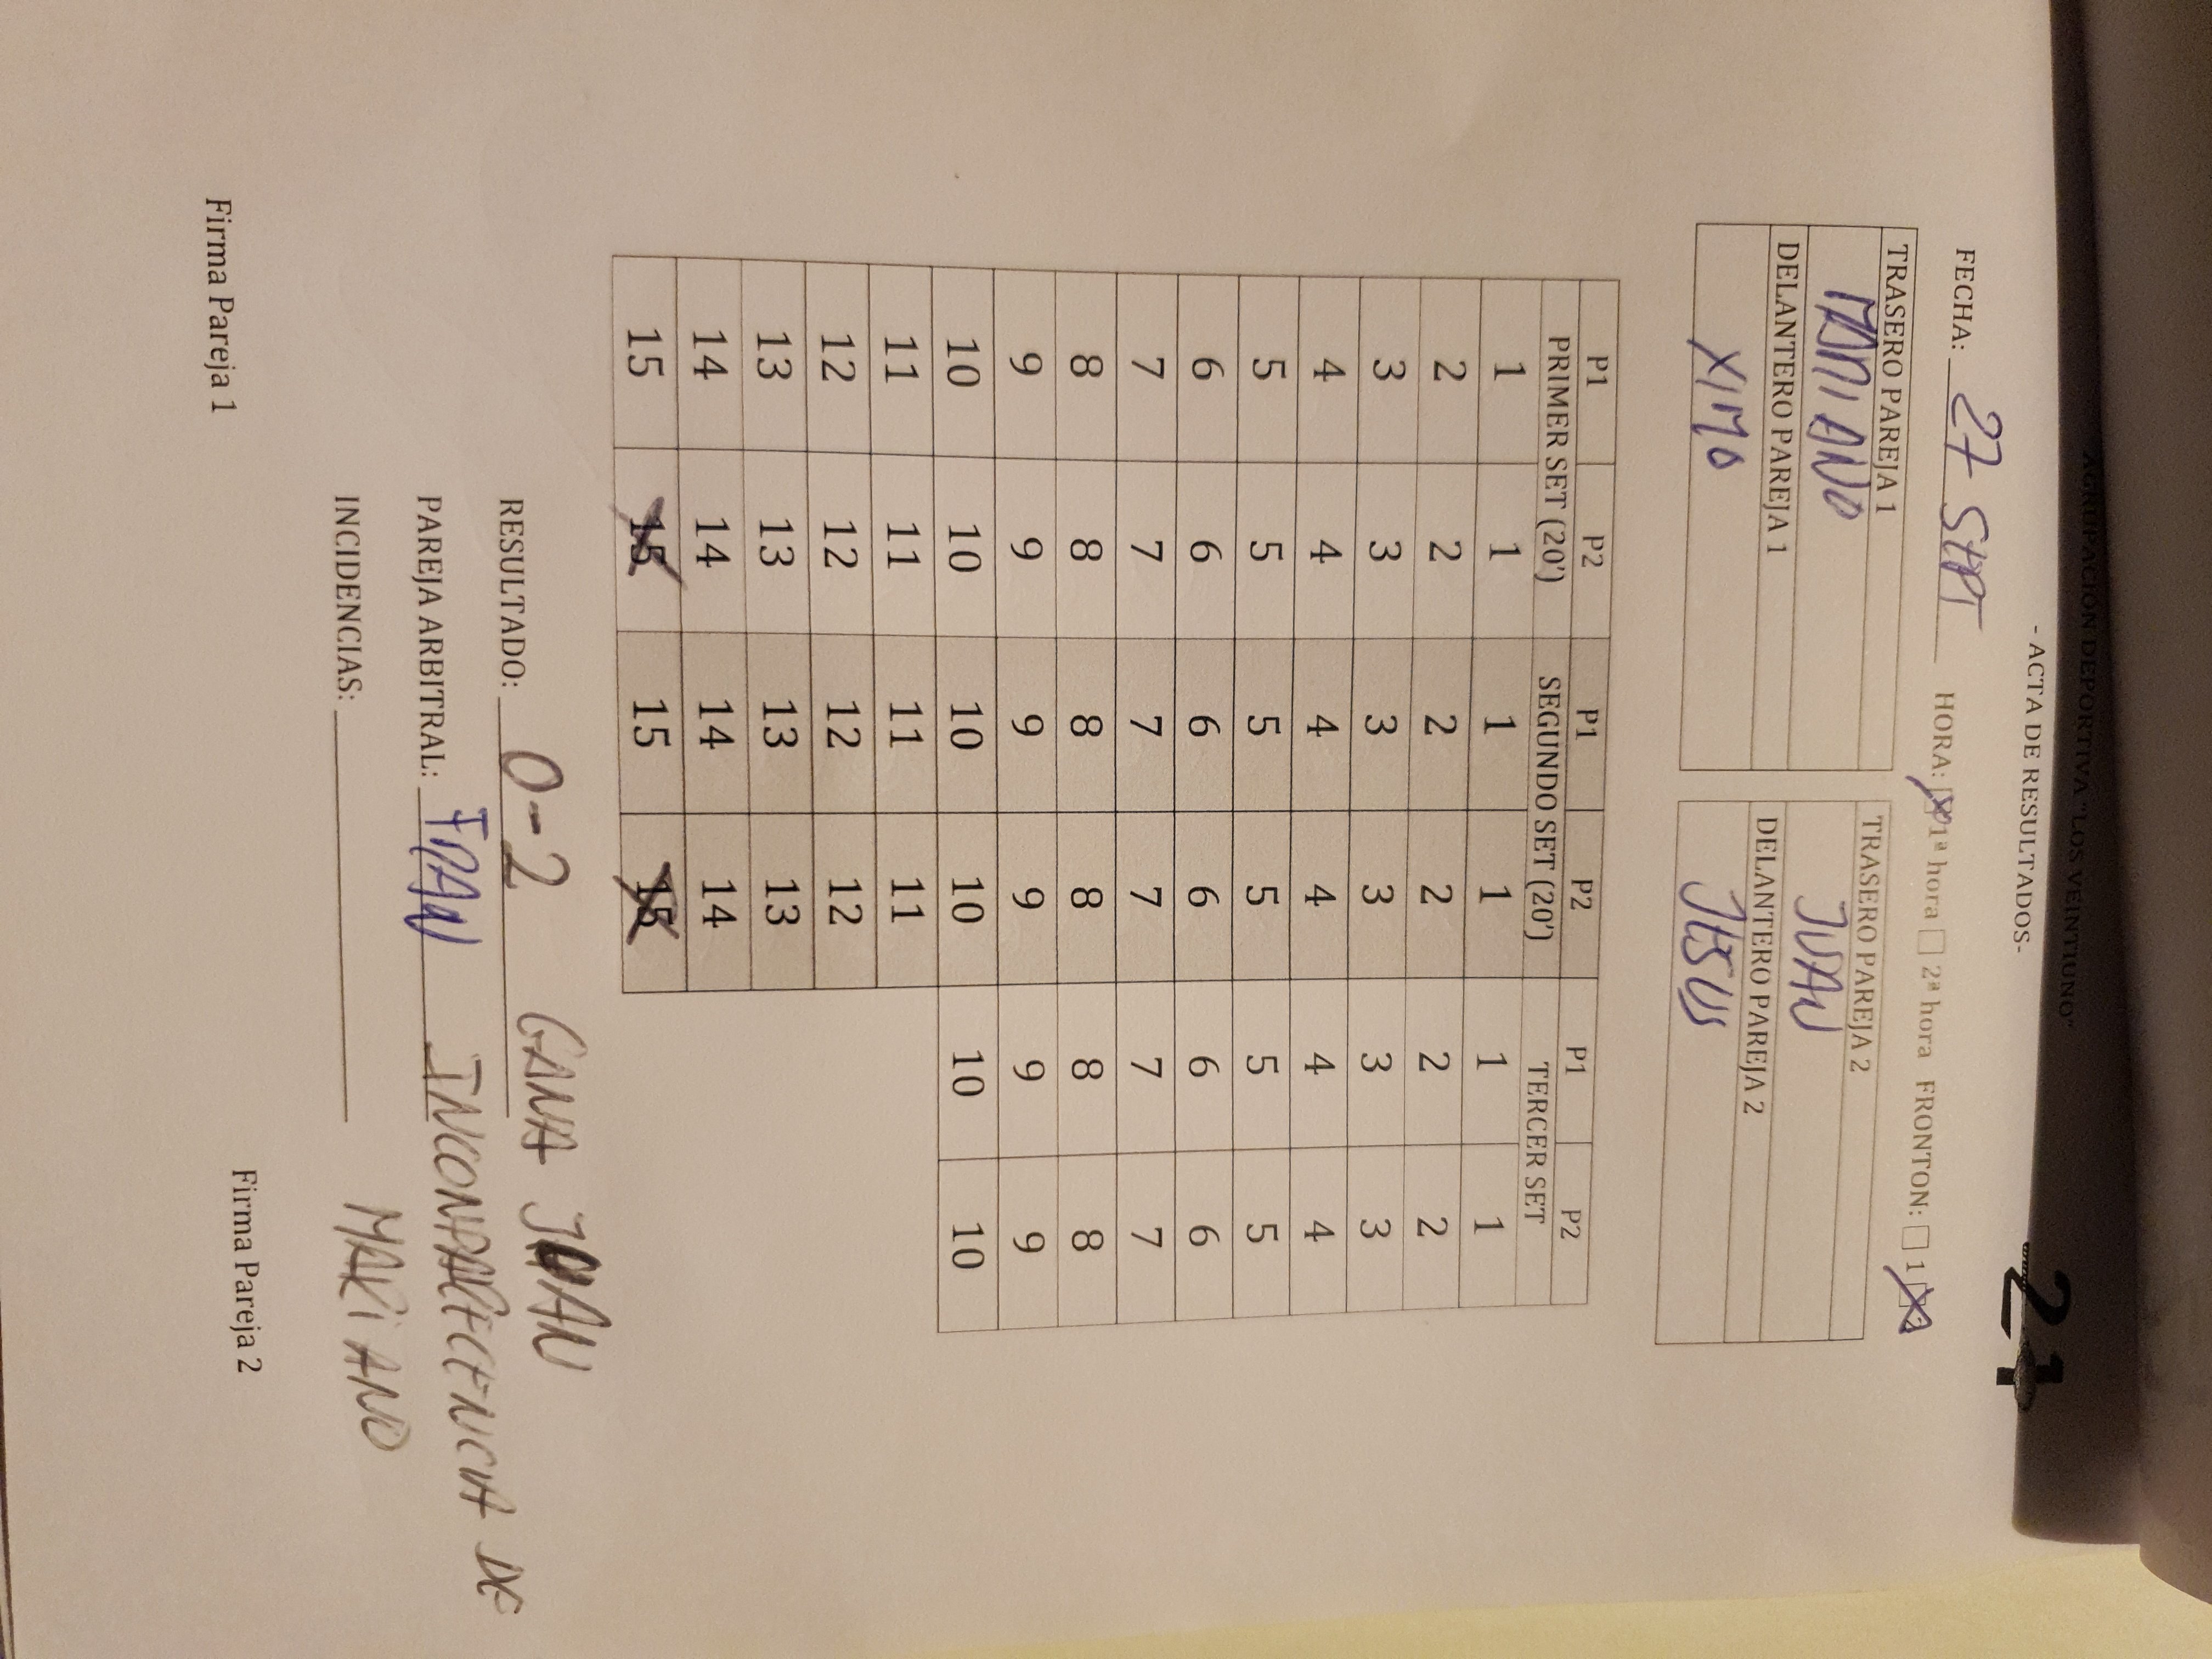 AGRUPACIÓN DEPORTIVA "LOS VEINTIUNO"
- ACTA DE RESULTADOS-
21
FECHA: 27 SEPT HORA: 1ª hora 2ª hora FRONTON: 1 2
TRASERO PAREJA 1 TRASERO PAREJA 2
MARIANO JUAN
DELANTERO PAREJA 1 DELANTERO PAREJA 2
XIMO JESUS
P1 P2 P1 P2 P1 P2
PRIMER SET (20') SEGUNDO SET (20') TERCER SET
1 1 1 1 1 1
2 2 2 2 2 2
3 3 3 3 3 3
4 4 4 4 4 4
5 5 5 5 5 5
6 6 6 6 6 6
7 7 7 7 7 7
8 8 8 8 8 8
9 9 9 9 9 9
10 10 10 10 10 10
11 11 11 11
12 12 12 12
13 13 13 13
14 14 14 14
15 15 15 15
RESULTADO: 0-2 GANA JUAN
PAREJA ARBITRAL: FRAN INCOMPARECENCIA DE
INCIDENCIAS: MARIANO
Firma Pareja 1 Firma Pareja 2